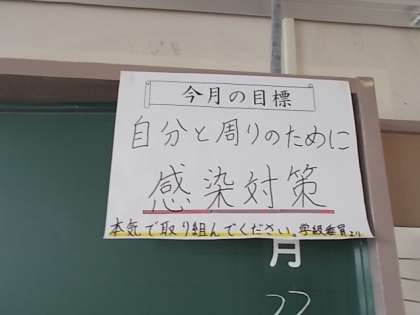 今月の目標
自分と周りのために
感染対策
本気で取り組んでください。学級委員より
月
22